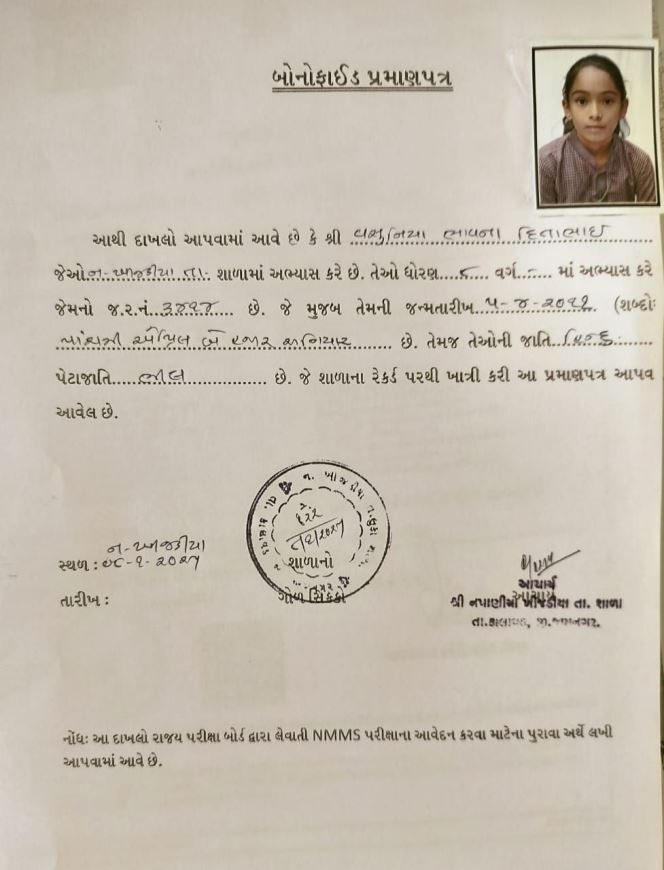 બોનોફાઈડ પ્રમાણપત્ર
આથી દાખલો આપવામાં આવે છે કે શ્રી વસુનિયા ભાવના હિતાભાઈ
જેઓ ન-ખીજડીયા તા. શાળામાં અભ્યાસ કરે છે. તેઓ ધોરણ ૮ વર્ગ - માં અભ્યાસ કરે
જેમનો જ.ર.નં ૩૪૧૪ છે. જે મુજબ તેમની જન્મતારીખ ૫-૪-૨૦૧૧ (શબ્દોઃ
પાંચમી એપ્રિલ બે હજાર અગિયાર છે. તેમજ તેઓની જાતિ હિન્દુ
પેટાજાતિ ભીલ છે. જે શાળાના રેકર્ડ પરથી ખાત્રી કરી આ પ્રમાણપત્ર આપવ
આવેલ છે.
શાળાનો
ગોળ સિક્કો
સ્થળ : ન-ખીજડીયા
તારીખ :
આચાર્ય
શ્રી નપાણીયા ખીજડીયા તા. શાળા
તા.કાલાવડ, જી.જામનગર.
નોંધઃ આ દાખલો રાજય પરીક્ષા બોર્ડ દ્વારા લેવાતી NMMS પરીક્ષાના આવેદન કરવા માટેના પુરાવા અર્થે લખી
આપવામાં આવે છે.